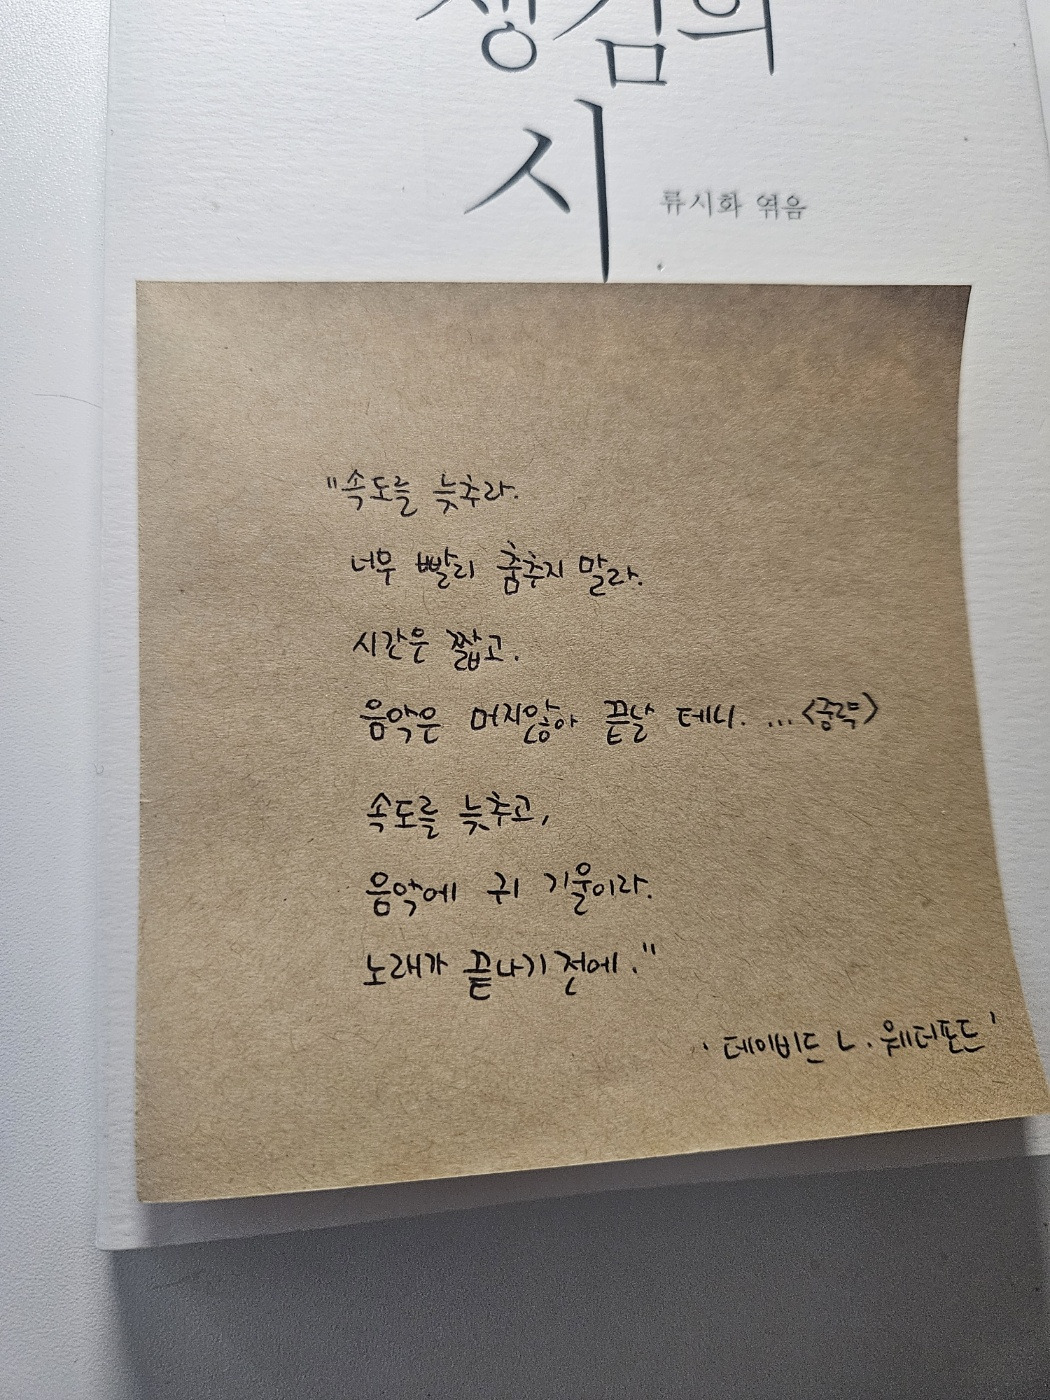 챙김의
시
류시화 엮음
"속도를 늦추라.
너무 빨리 춤추지 말라.
시간은 짧고.
음악은 머지않아 끝날 테니. ...<중략>
속도를 늦추고,
음악에 귀 기울이라.
노래가 끝나기 전에."
'데이비드 L. 웨더포드'